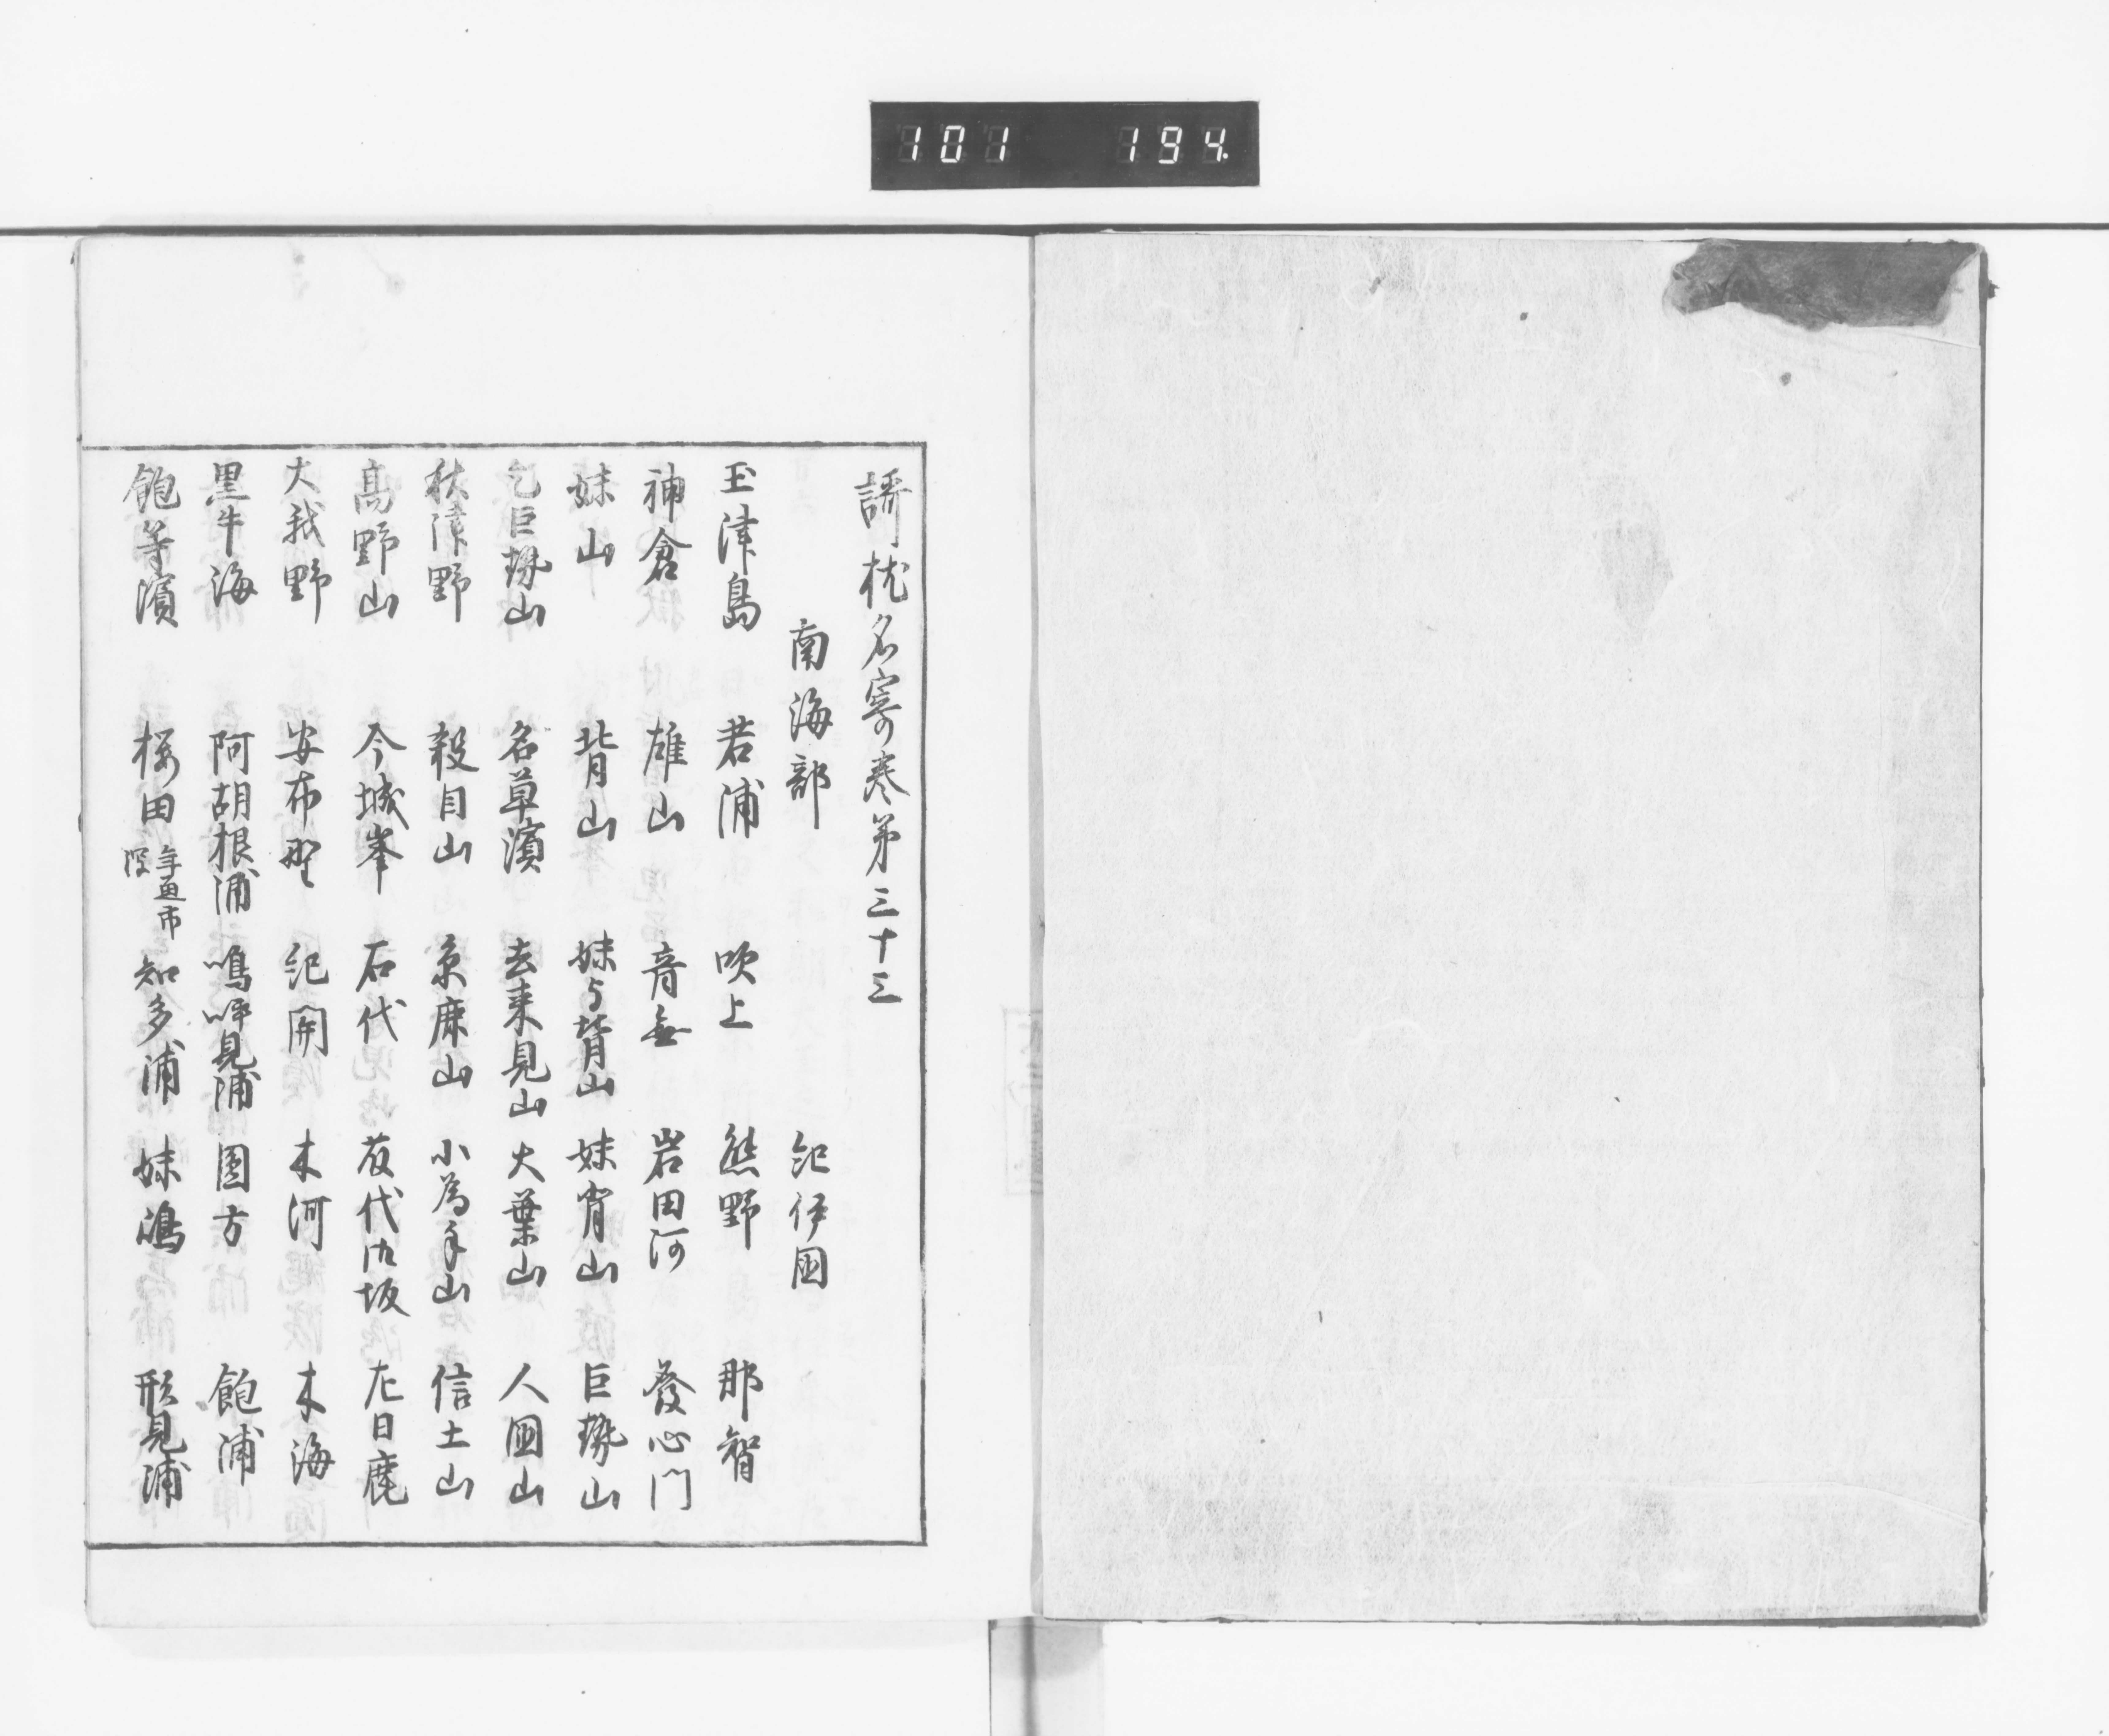 101 194
謌枕名寄巻第三十三
南海部 紀伊國
玉津島 若浦 吹上 熊野 那智
神倉 雄山 音無 岩田河 發心門
妹山 背山 妹与背山 妹背山 巨勢山
乞巨勢山 名草濱 去来見山 大葉山 人國山
秋津野 殺目山 糸麻山 小為手山 信土山
高野山 今城峯 石代 藤代御坂 左日鹿
大我野 安布野 紀関 木河 木海
黒牛海 阿胡根浦 鳴呼見浦 圓方 飽浦
飽等濱 桜田 年魚市 知多浦 妹嶋 形見浦